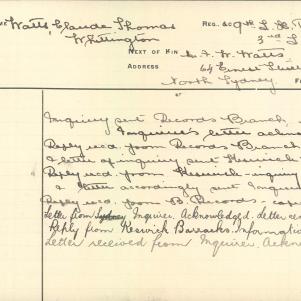 Watts, Claude Thomas REG. &C 9th L. H.
Whittington 3rd
NEXT OF KIN W. Watts
ADDRESS 64 Ernest Street
North Sydney
Inquiry sent Records Branch,
Inquirer's letter ackn
Reply recd. from Records Branch
& letter of inquiry sent Keswick
Reply recd. from Keswick - inquiry
& letter accordingly sent Inquirer
Reply recd. from B Records - cop
Letter from Sydney Inquirer. Acknowledged. Letter
Reply from Keswick Barracks. Information
Letter received from Inquirer. Ackno